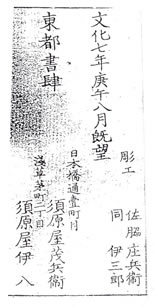 彫工
佐脇庄兵衛
同 伊三郎
文化七年庚午八月既望
東都書肆
日本橋通壹町目
須原屋茂兵衛
浅草茅町二丁目
須原屋伊八